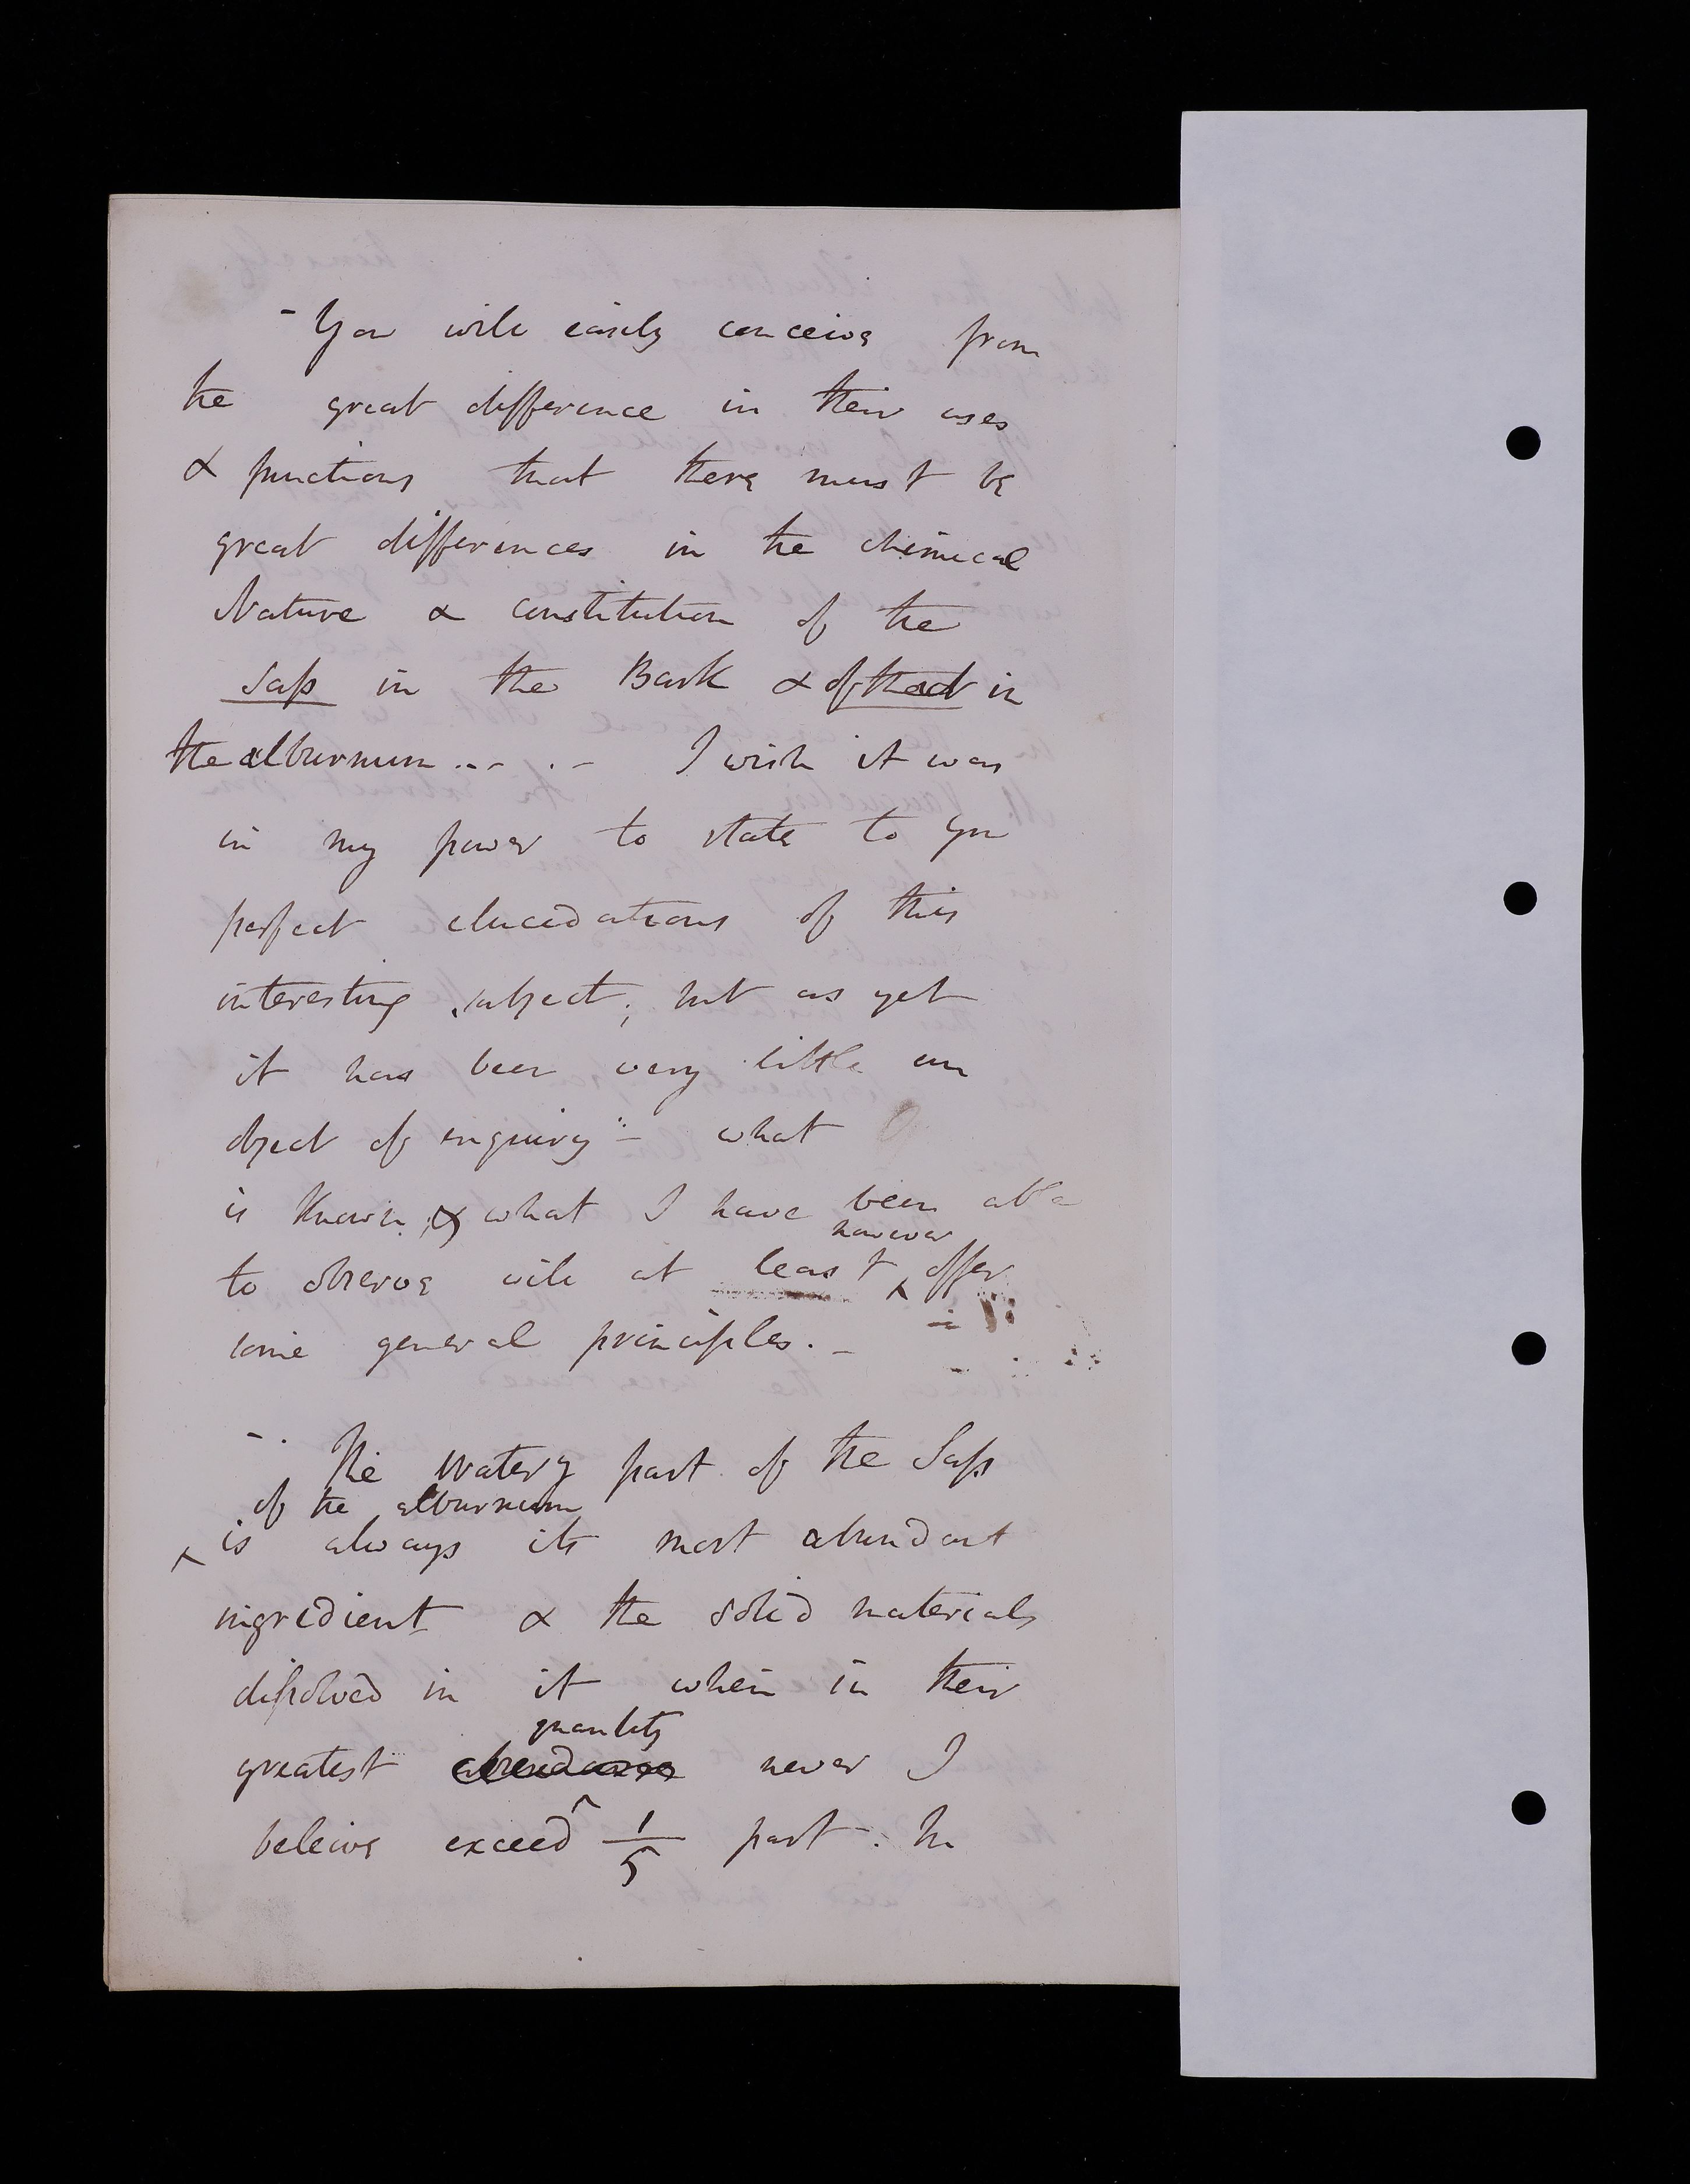 - You will easily conceive from
the great difference in their uses
& functions that there must be
great differences in the chemical
Nature & constitution of the
Sap in the Bark & of that in
the alburnum .. - . - I wish it was
in my power to state to you
perfect elucidations of this
interesting subject; but as yet
it has been very little an
object of enquiry - what
is known & what I have been able
however
to observe will at least ^ offer
some general principles. -
- . The watery part of the Sap
of the alburnum
^ is always its most abundant
ingredient & the solid materials
dissolved in it when in their
quantity
greatest abundance never I
beleive exceed 1/5 part. In